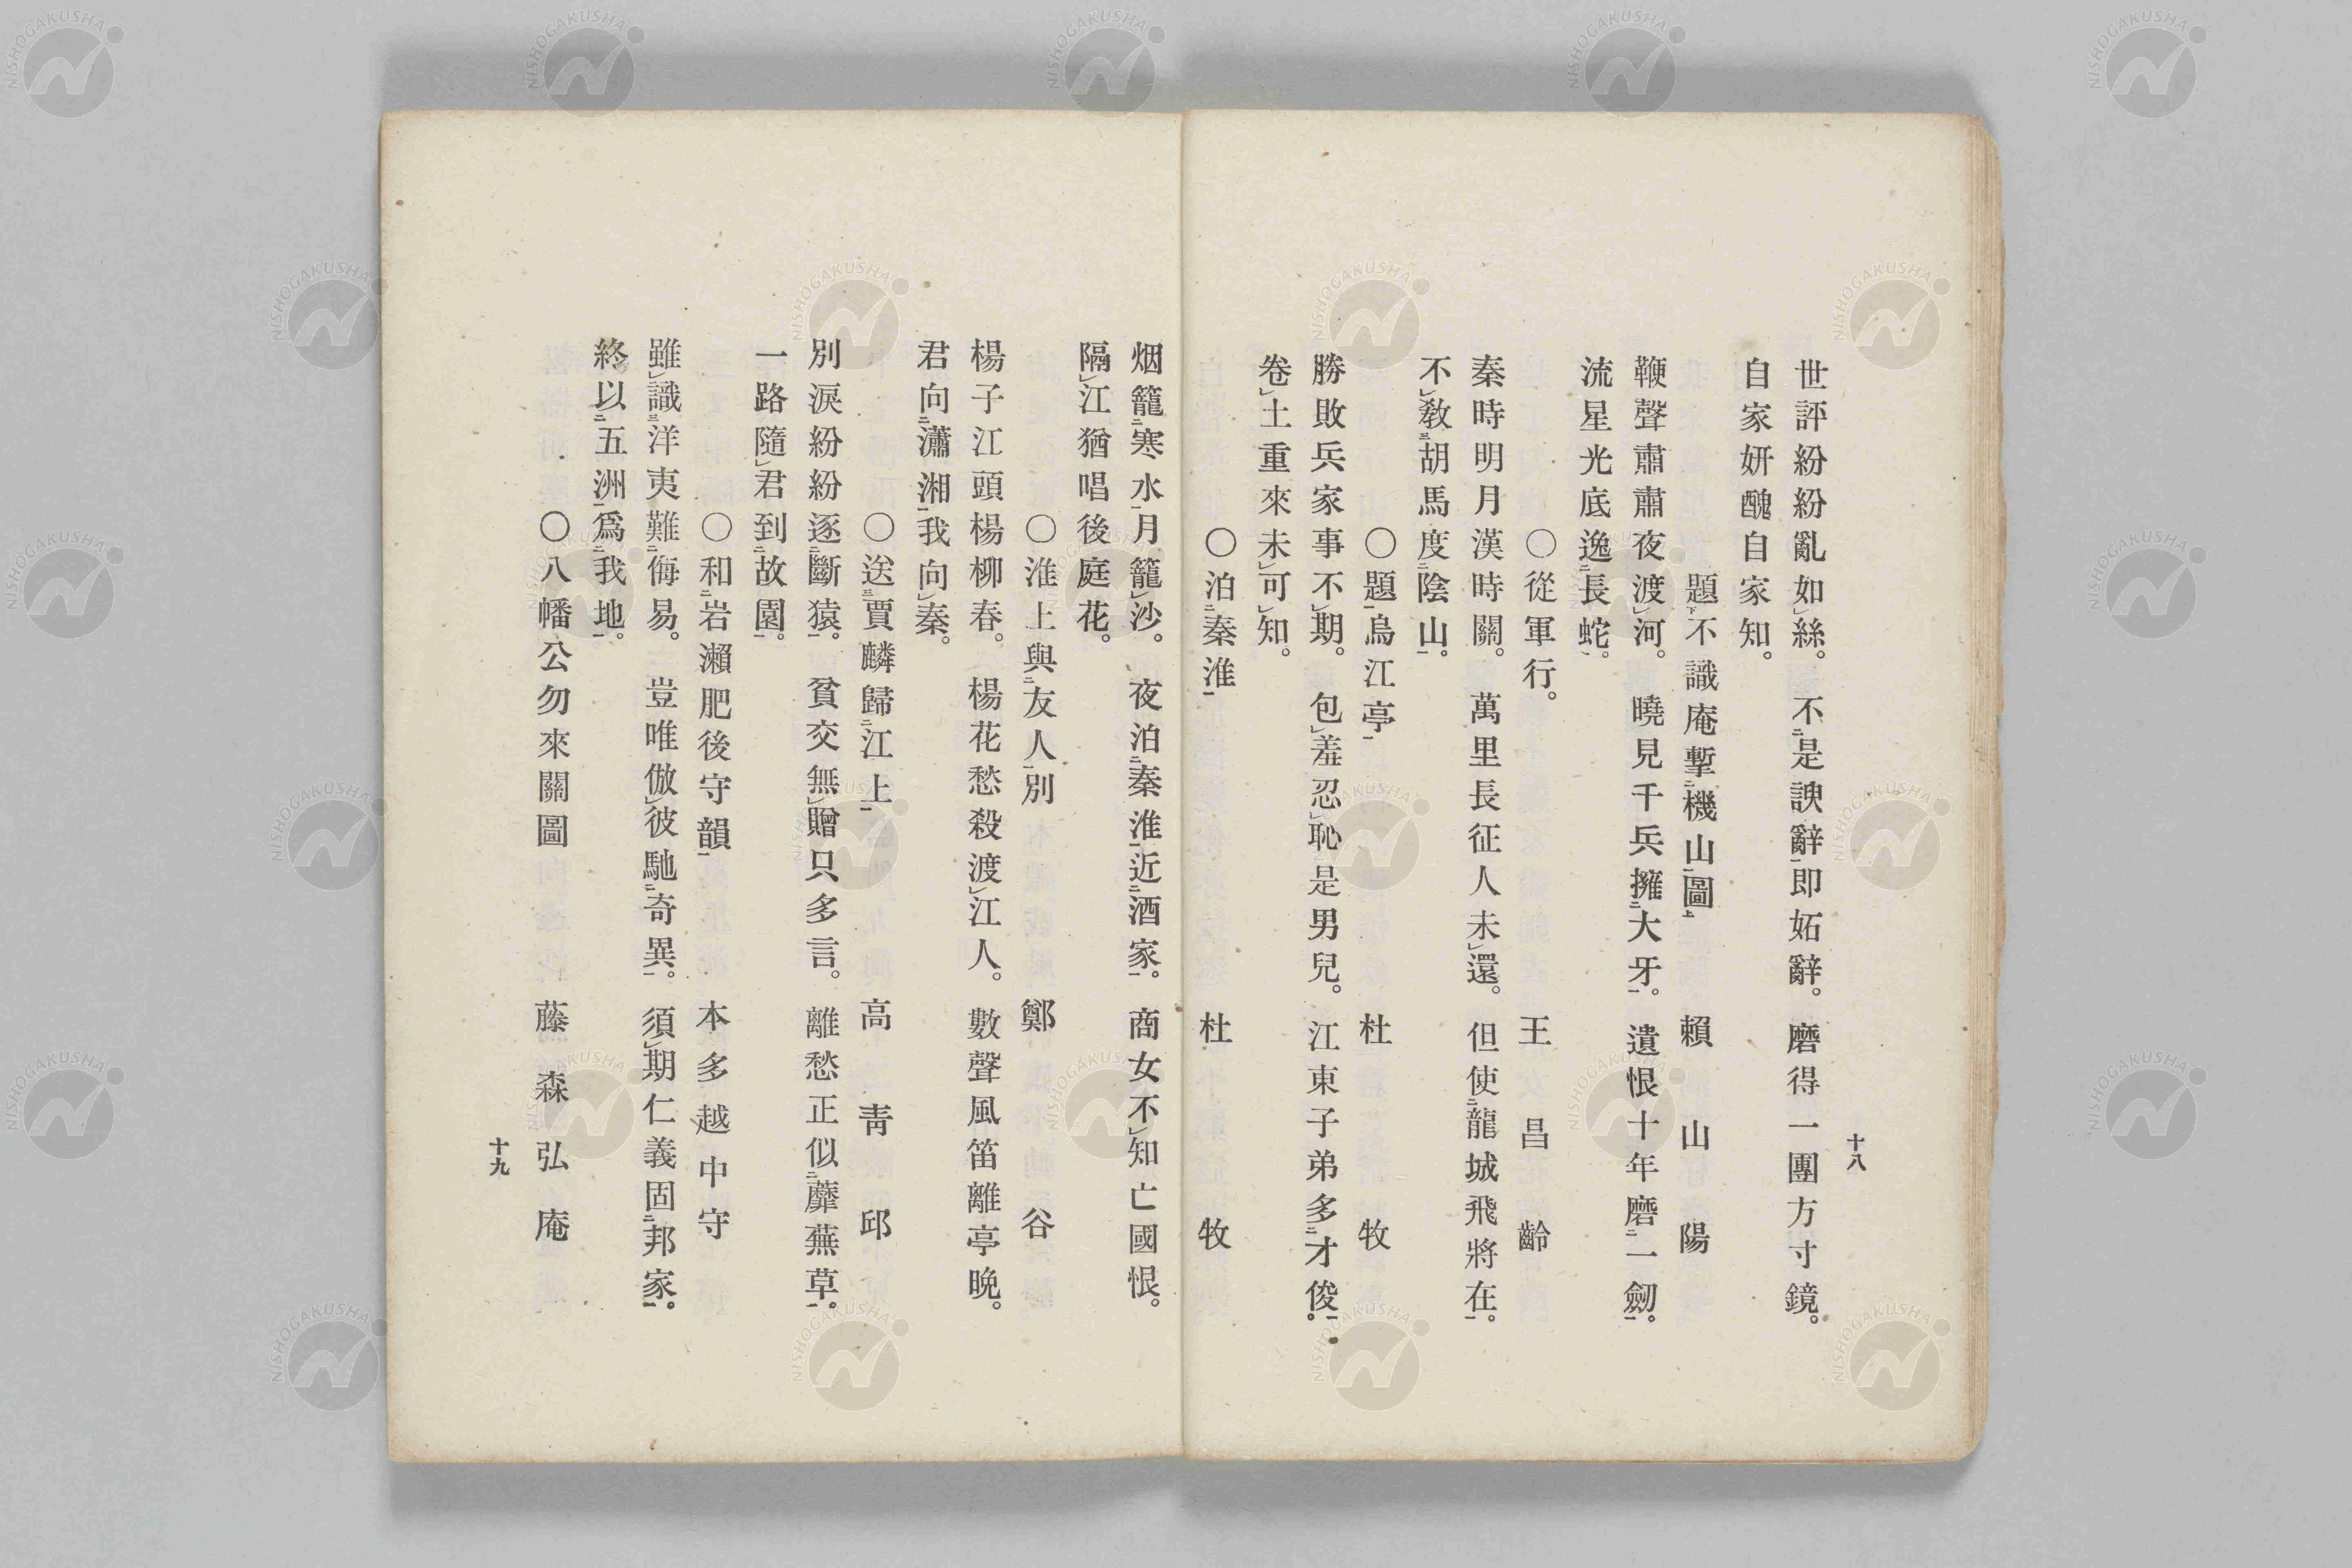 十八
世評紛紛亂如㆑絲。不㆓是諛辭㆒即妬辭。磨得一團方寸鏡。
自家妍醜自家知。
題㆘不識庵擊㆓機山㆒圖㆖ 賴山陽
鞭聲肅肅夜渡㆑河。曉見千兵擁㆓大牙㆒。遺恨十年磨㆓一劒㆒。
流星光底逸㆓長蛇㆒。
〇從軍行。 王昌齡
秦時明月漢時關。萬里長征人未㆑還。但使㆓龍城飛將在㆒。
不㆑敎㆔胡馬度㆓陰山㆒。
〇題㆓烏江亭㆒ 杜牧
勝敗兵家事不㆑期。包㆑羞忍㆑恥是男兒。江東子弟多㆓才俊㆒。
卷㆑土重來未㆑可㆑知。
〇泊㆓秦淮㆒ 杜牧
烟籠㆓寒水㆒月籠㆑沙。夜泊㆓秦淮㆒近㆓酒家㆒。商女不㆑知亡國恨。
隔㆑江猶唱後庭花。
〇淮上與㆓友人㆒別 鄭谷
楊子江頭楊柳春。楊花愁殺渡㆑江人。數聲風笛離亭晚。
君向㆓瀟湘㆒我向㆑秦。
〇送㆔賈麟歸㆓江上㆒ 高靑邱
別淚紛紛逐㆓斷猿㆒。貧交無㆑贈只多言。離愁正似㆓蘼蕪草㆒。
一路隨㆑君到㆓故園㆒。
〇和㆓岩瀨肥後守韻㆒ 本多越中守
雖㆑識㆔洋夷難㆓侮易㆒。豈唯倣㆑彼馳㆓奇異㆒。須㆑期仁義固㆓邦家㆒。
終以㆓五洲㆒爲㆓我地㆒。
〇八幡公勿來關圖 藤森弘庵
十九
NISHOGAKUSHA